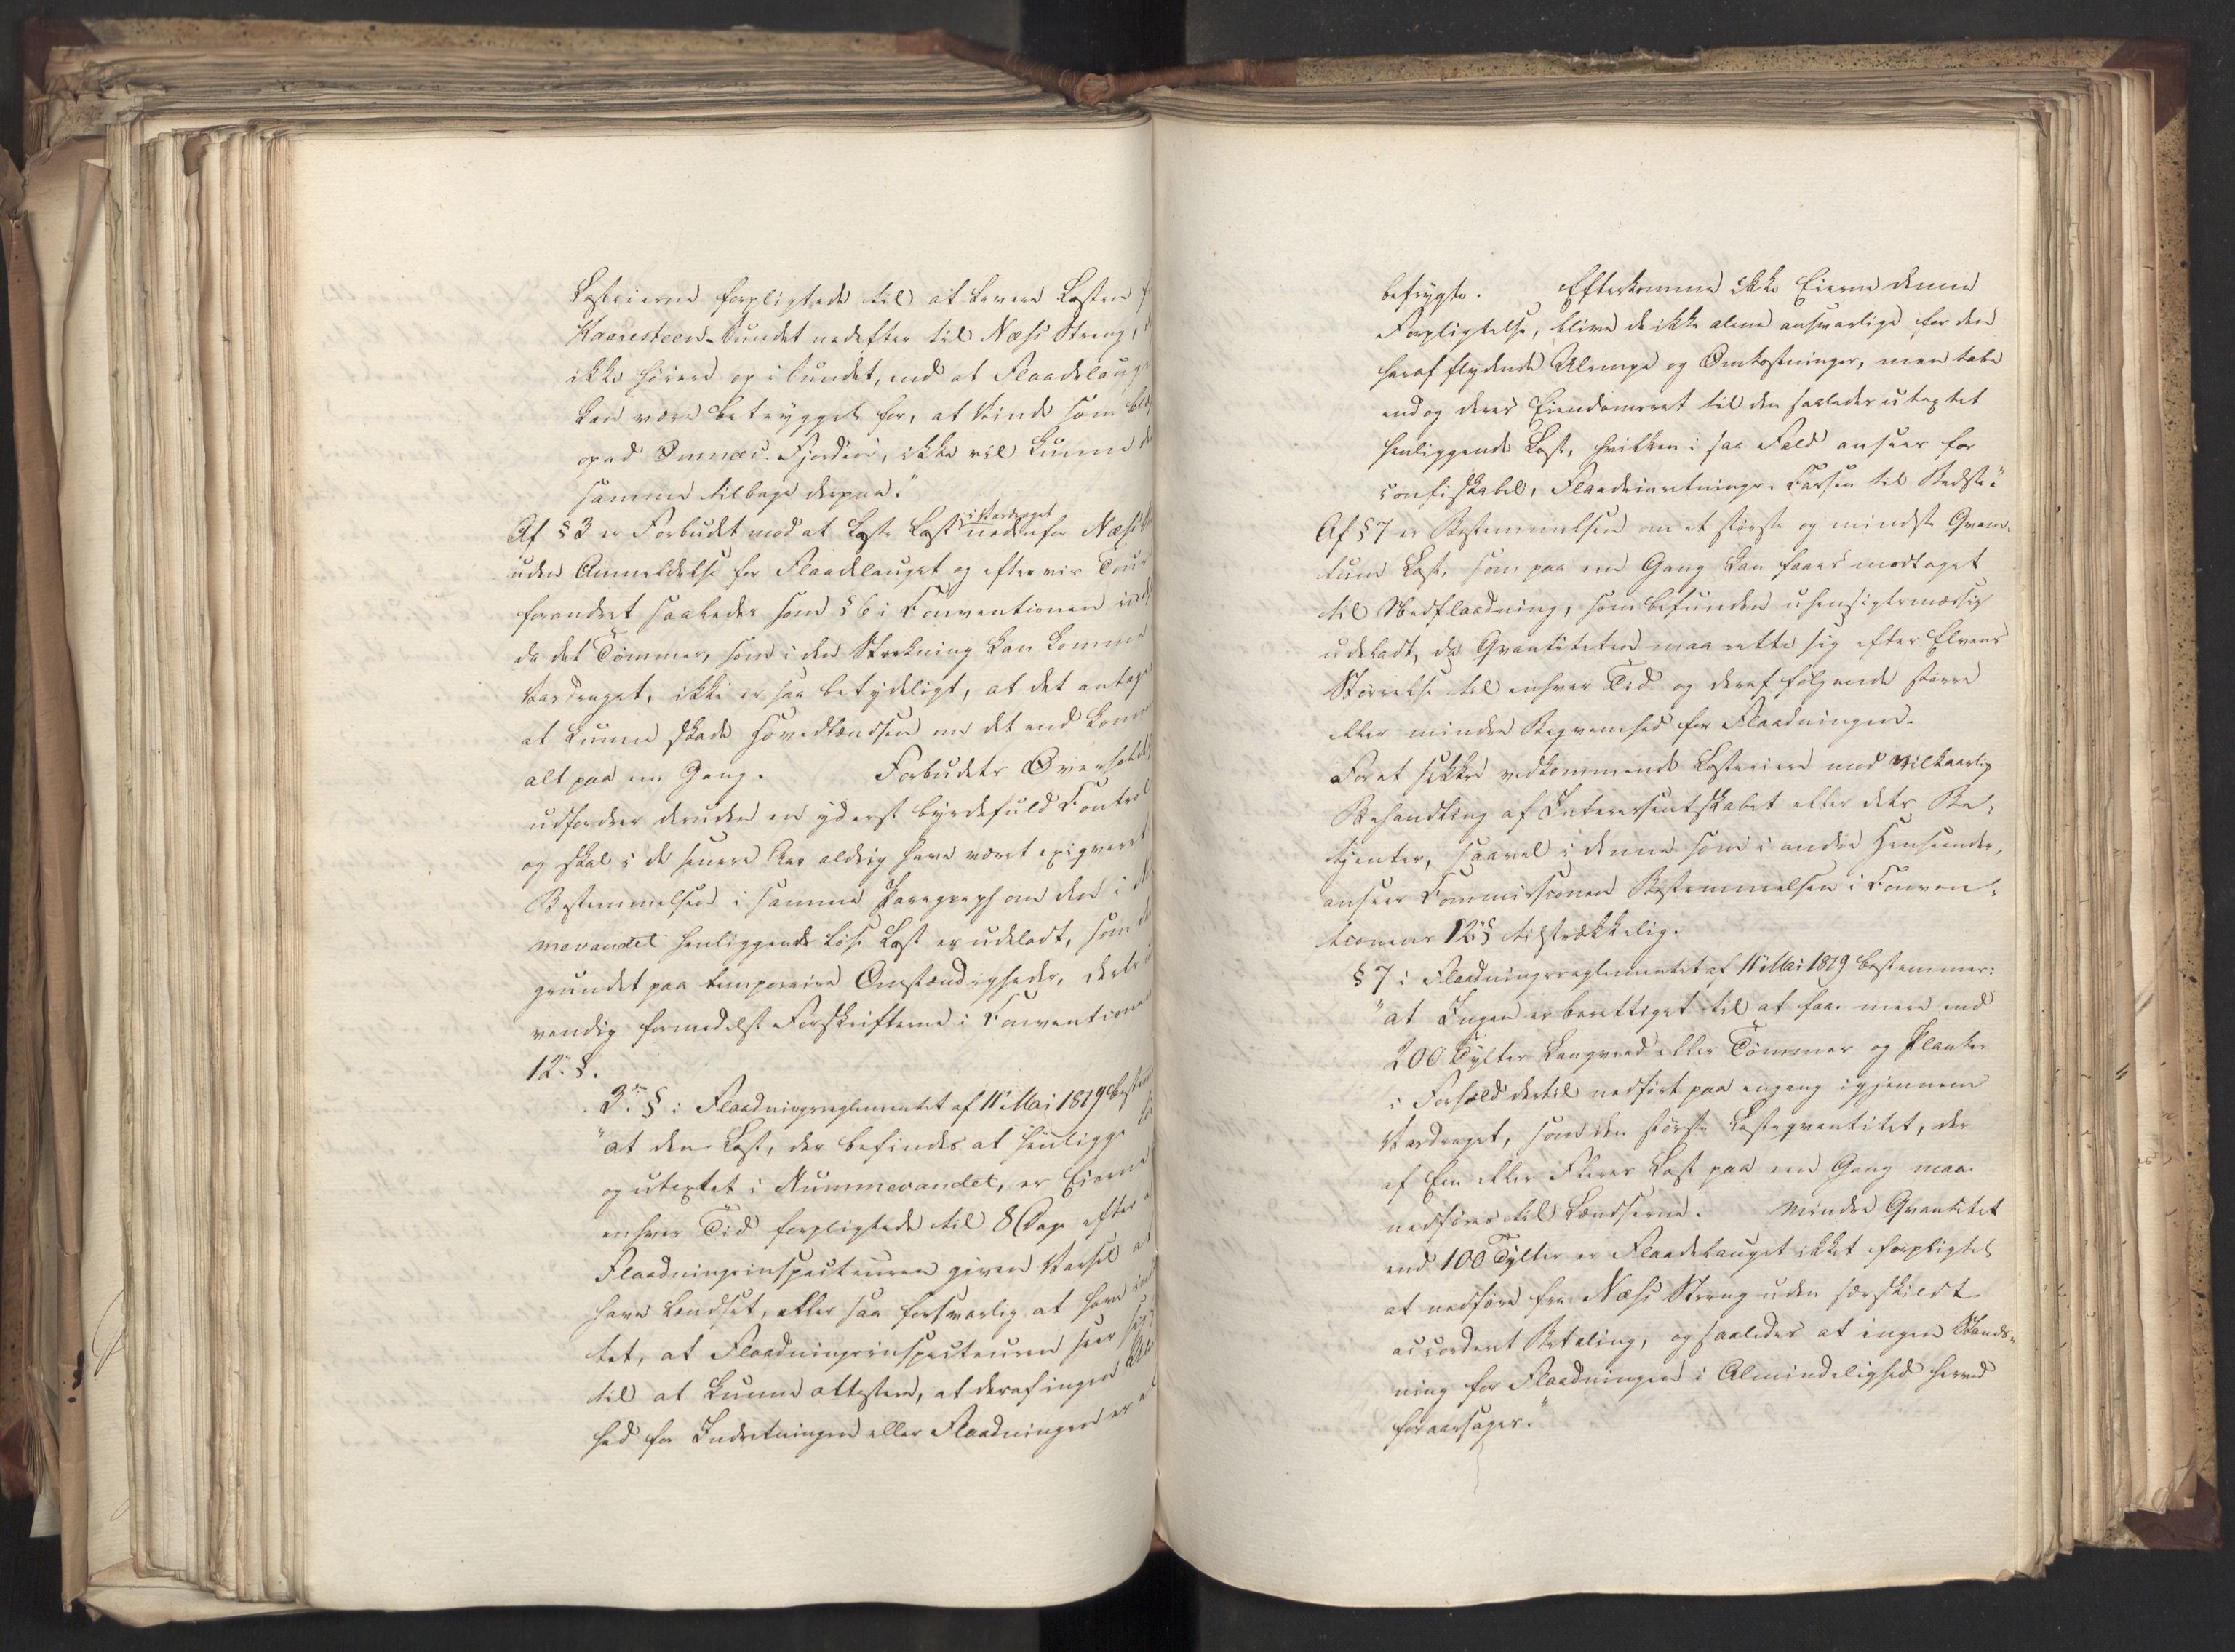 Lasteierne forpligtede til at levere Lasten
Kaaresteen-Sundet nedefter til Næss Streng,
ikke høiere op i Sundet, end at Flaadelauget
kan være betrygget for, at Vinde som
opad Ommeds-Fjorden, ikke vil kunne
samme tilbage derpaa."
i Vardraget
Af § 3 er Forbudet mod at kaste Last nedenfor Næss
uden Anmeldelse for Flaadelauget og efter vis Tour
forandret saaledes som § 6 i Conventionen
da det Tømmer, som i den Strækning kan komme
Vardraget, ikke er saa betydeligt, at det antages
at kunne skade Hovedlændsen om det end kom
alt paa en Gang. Forbudets Overholdelse
udfordrer desuden en yderst byrdefuld Control
og skal i de senere Aar aldrig have været exiqveret
Bestemmelsen i samme Paragraph om den i
mevandet henliggende løse Last er udeladt, som
grundet paa temporaire Omstændigheder,
vendig formedelst Forskrifterne i Conventionens
12. §.
3. § i Flaadningsreglementet af 11 Mai 1819
"at den Last, der befindes at henligge
og utextet i Nummevandet, er Eierne
enhver Tid forpligtede til 8 Dage efter
Flaadningsinspecteuren given Varsel at
have lændset, eller saa forsvarlig at have
tet, at Flaadningsinspecteuren seer sig
til at kunne attestere, at deraf ingen
hed for Indretningen eller Flaadningen er at
befrygte. Efterkomme ikke Eierne denne
Forpligtelse, blive de ikke alene ansvarlige for den
heraf flydende Ulempe og Omkostninger, men tabe
endog deres Eiendomsret til den saaledes utextet
henliggende Last, hvilken i saa Fald ansees for
confiskabel, Flaadeinretnings-Cassen til Bedste"
Af § 7 er Bestemmelsen om et største og mindste Qvan-
tum Last, som paa een Gang kan faaes modtaget
til Nedflaadning, som befunden uhensigtsmæssig
udeladt, da Qvantiteten maa rette sig efter Elvens
Størrelse til enhver Tid og deraf følgende større
eller mindre Beqvemhed for Flaadningen.
For at sikkre vedkommende Lasteeiere mod vilkaarlig
Behandling af Interessentskabet eller dets Be-
tjenter, saavel i denne som i andre Henseender,
anseer Commissionen Bestemmelsen i Conven-
tionens 12 § tilstrækkelig.
§ 7 i Flaadningsreglementet af 11 Mai 1819 bestemmer:
"at Ingen er berettiget til at faae mere end
200 Tylter Langveed eller Tømmer og Planker
i Forhold dertil nedført paa engang igjennem
Vardraget, som den største Lasteqvantitet, der
af Een eller Fleres Last paa een Gang maae
nedføres til Lændserne. Mindre Qvantitet
end 100 Tylter er Flaadelauget ikket forpligtet
at nedføre fra Næss Streng uden særskildt
accorderet Betaling, og saaledes at ingen Stands-
ning for Flaadningen i Almindelighed herved
foraarsages."